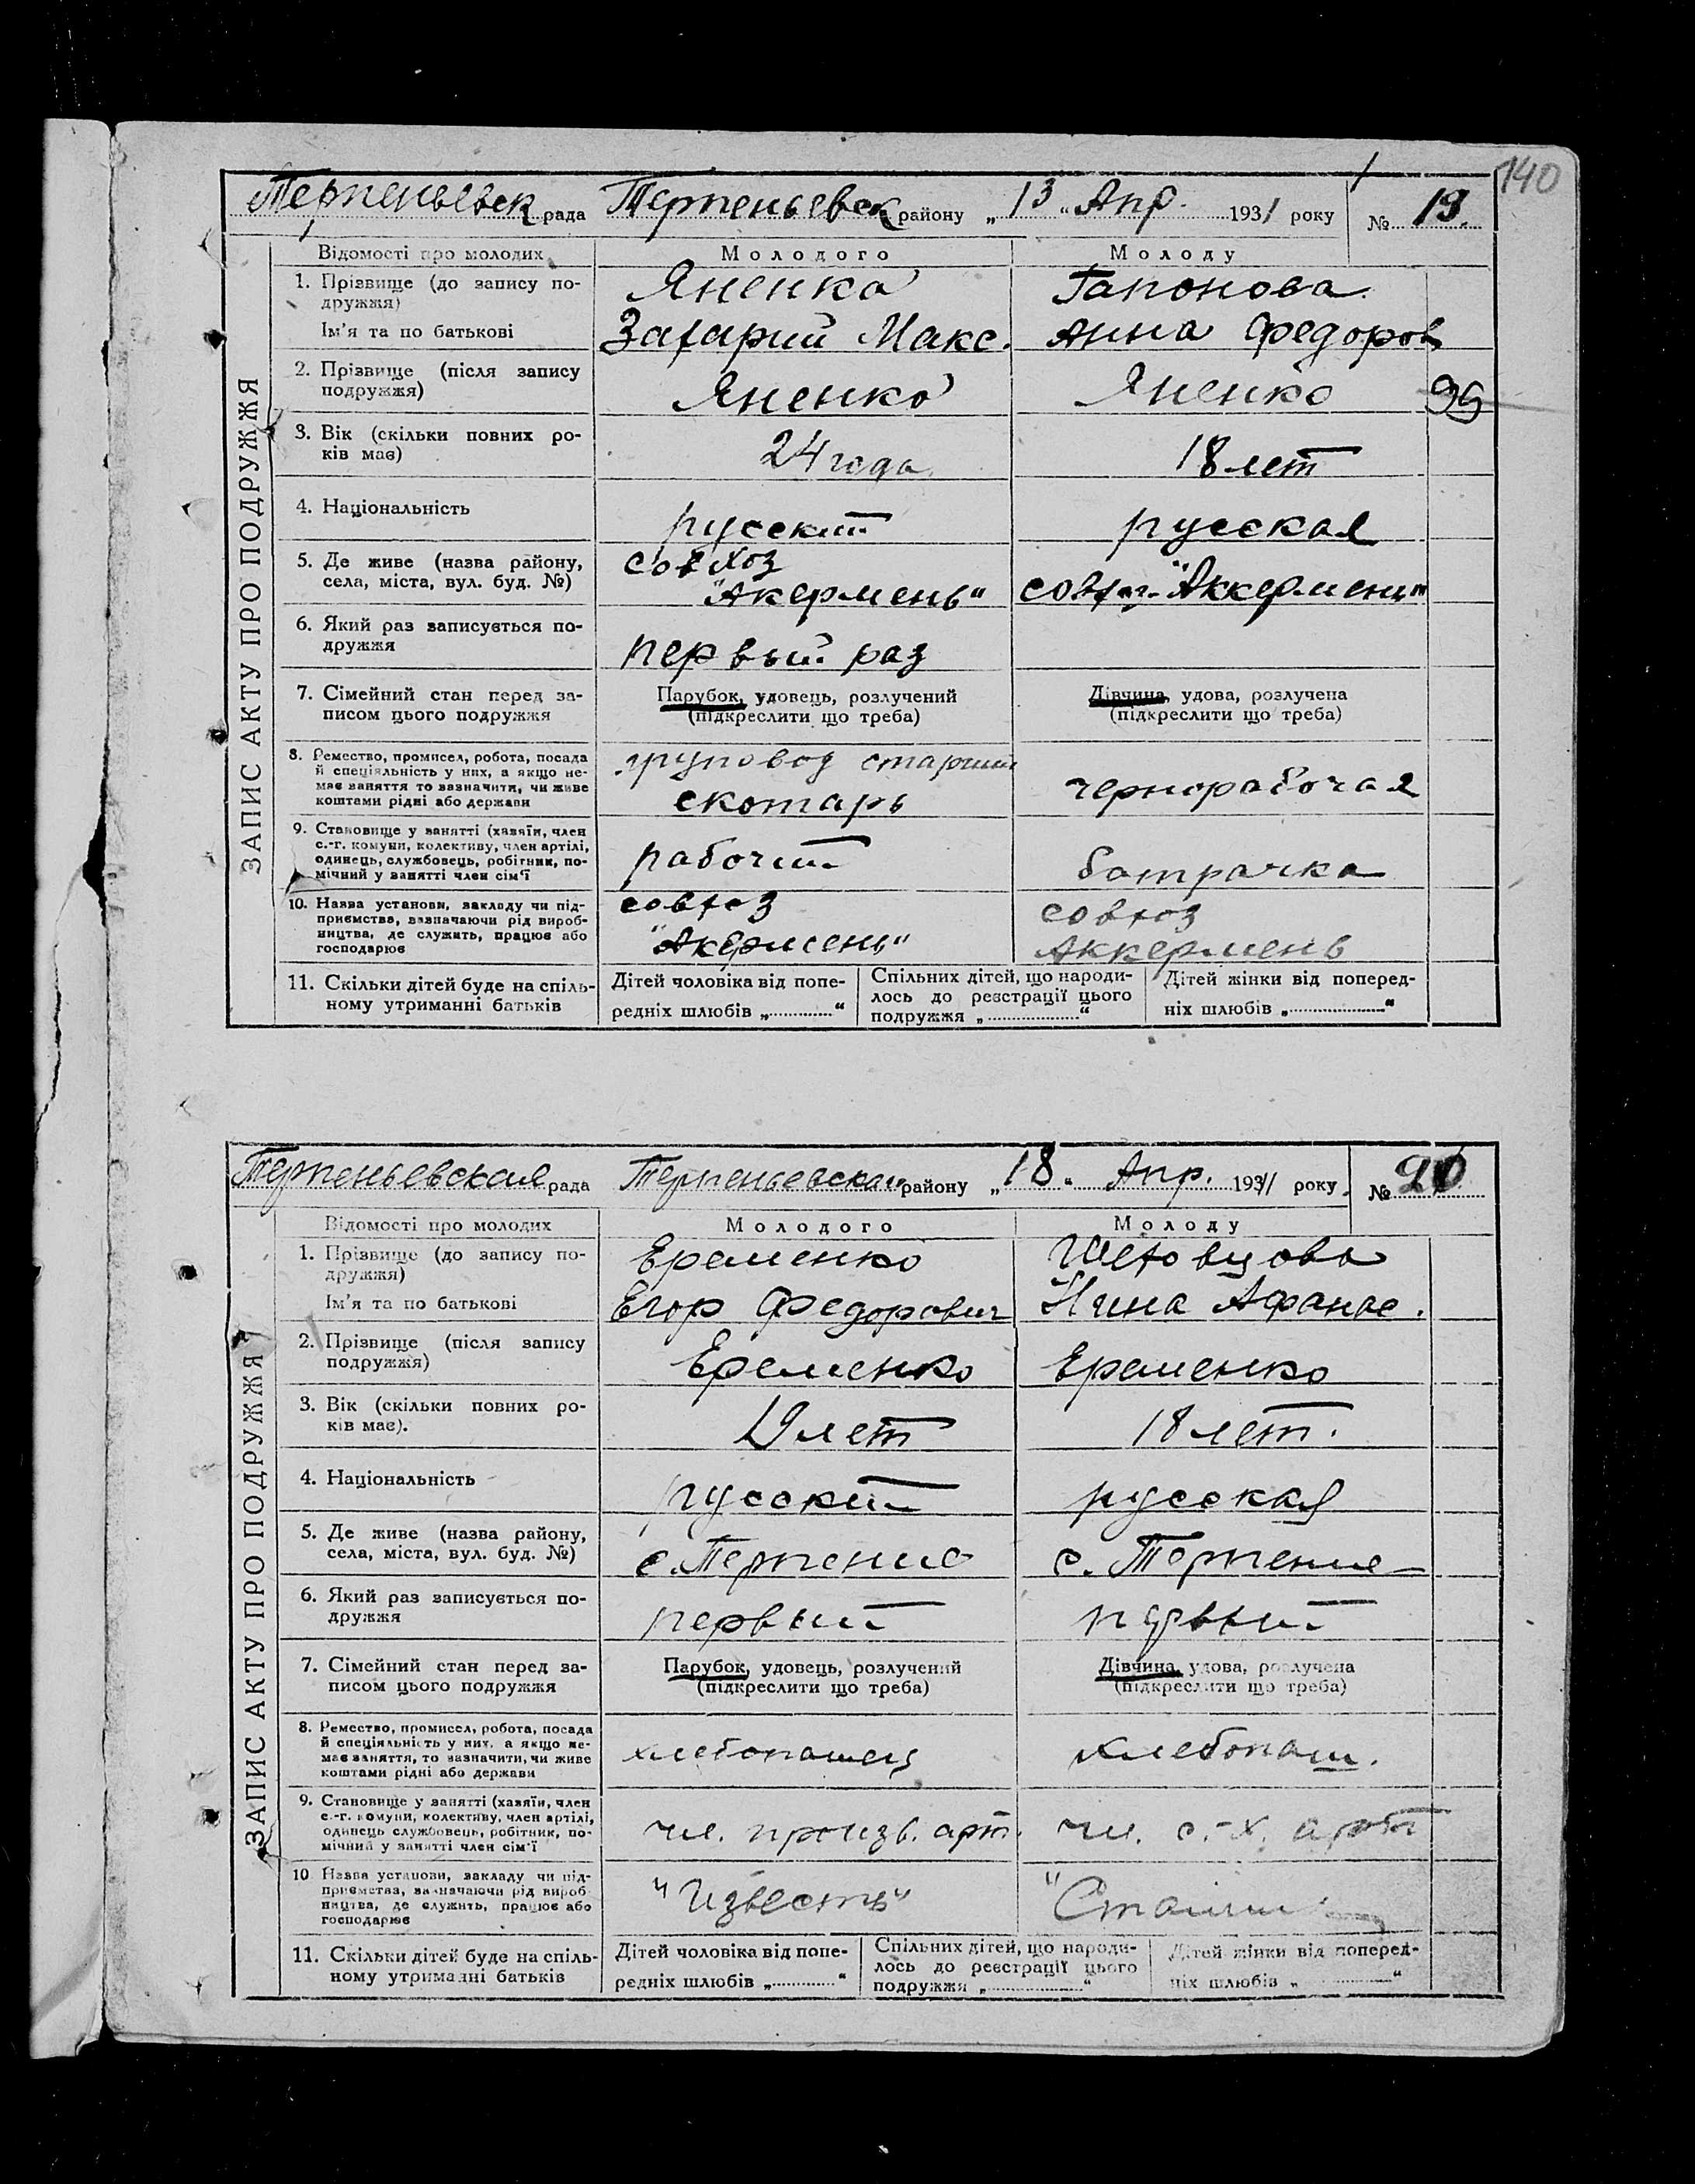 140
Терпеньевск рада Терпеньевск району „13“ Апр. 1931 року № 19.
Відомості про молодих Молодого Молоду
1. Прізвище (до запису по- Яненко Гапонова
дружжя)
Ім'я та по батькові Захарий Макс. Анна Федоров
2. Прізвище (після запису Яненко Яненко 99
подружжя)
3. Вік (скільки повних ро- 24 года 18 лет
ків має)
4. Національність русский русская
5. Де живе (назва району, совхоз
села, міста, вул. буд. №) "Акермень" совхоз "Аккермень"
6. Який раз записується по- первый раз
дружжя
7. Сімейний стан перед за- Парубок, удовець, розлучений Дівчина, удова, розлучена
писом цього подружжя (підкреслити що треба) (підкреслити що треба)
8. Ремество, промисел, робота, посада груповод старший
й спеціяльність у них, а якщо не- чернорабочая
має заняття то зазначити, чи живе скотарь
коштами рідні або держави
9. Становище у занятті (хазяїн, член
с.-г. комуни, колективу, член артілі, рабочий батрачка
одинець, службовець, робітник, по-
мічний у занятті член сім'ї
10. Назва установи, закладу чи під- совхоз совхоз
приємства, зазначаючи рід вироб-
ництва, де служить, працює або "Акермень" Аккермень
господарює
11. Скільки дітей буде на спіль- Дітей чоловіка від попе- Спільних дітей, що народи- Дітей жінки від поперед-
ному утриманні батьків редніх шлюбів „ “ лось до реєстрації цього ніх шлюбів „ “
подружжя „ “
ЗАПИС АКТУ ПРО ПОДРУЖЖЯ
Терпеньевская рада Терпеньевская району „18“ Апр. 1931 року № 20
Відомості про молодих Молодого Молоду
1. Прізвище (до запису по- Еременко Шеховцова
дружжя)
Ім'я та по батькові Егор Федорович Нина Афанас.
2. Прізвище (після запису Еременко Еременко
подружжя)
3. Вік (скільки повних ро- 19 лет 18 лет.
ків має).
4. Національність русский русская
5. Де живе (назва району,
села, міста, вул. буд. №) с. Терпение с. Терпение
6. Який раз записується по- первый первый
дружжя
7. Сімейний стан перед за- Парубок, удовець, розлучений Дівчина, удова, розлучена
писом цього подружжя (підкреслити що треба) (підкреслити що треба)
8. Ремество, промисел, робота, посада
й спеціяльність у них, а якщо не- хлебопашец хлебопаш.
має заняття, то зазначити, чи живе
коштами рідні або держави
9. Становище у занятті (хазяїн, член
с.-г. комуни, колективу, член артілі, чл. произв. арт. чл. с.-х. арт
одинець службовець, робітник, по-
мічний у занятті член сім'ї
10 Назва установи, закладу чи під-
приємства, зазначаючи рід вироб "Известь"
ництва, де служить, працює або
господарює
11. Скільки дітей буде на спіль- Дітей чоловіка від попе- Спільних дітей, що народи- Дітей жінки від поперед-
ному утриманні батьків редніх шлюбів „ “ лось до реєстрації цього ніх шлюбів „ “
подружжя „ “
ЗАПИС АКТУ ПРО ПОДРУЖЖЯ